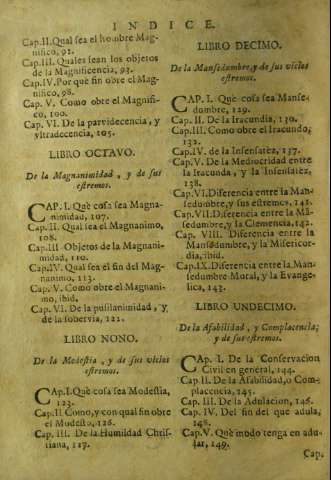 INDICE.
Cap.II.Qual sea el hombre Mag-
nifico, 91.
Cap.III. Quales sean los objetos
de la Magnificencia, 93.
Cap.IV.Por què fin obre el Mag-
nifico, 98.
Cap. V. Como obre el Magnifi-
co, 100.
Cap. VI. De la parvidecencia, y
vltradecencia, 105.
LIBRO OCTAVO.
De la Magnanimidad , y de sus
estremos.
CAP. I. Què cosa sea Magna-
nimidad, 107.
Cap.II. Qual sea el Magnanimo,
108.
Cap.III Objetos de la Magnani-
midad, 110.
Cap.IV. Qual sea el fin del Mag-
nanimo, 113.
Cap. V. Como obre el Magnani-
mo, ibid.
Cap. VI. De la pusilanimidad , y
de la sobervia, 121.
LIBRO NONO.
De la Modestia , y de sus vicios
estremos.
CAp.I. Què cosa sea Modestia,
123.
Cap.II.Como, y con qual fin obre
el Modesto, 126.
Cap. III. De la Humildad Chris-
tiana, 127.
LIBRO DECIMO.
De la Mansedumbre, y de sus vicios
estremos.
CAP. I. Què cosa sea Manse-
dumbre, 129.
Cap. II. De la Iracundia, 130.
Cap.III. Como obre el Iracundo,
132.
Cap.IV. de la Insensatèz, 137.
Cap.V. De la Mediocridad entre
la Iracunda , y la Insensatèz,
138.
Cap.VI.Diferencia entre la Man-
sedumbre,y sus estremos, 141.
Cap.VII.Diferencia entre la Mã-
sedumbre, y la Clemencia, 142.
Cap. VIII. Diferencia entre la
Mansedumbre, y la Misericor-
dia, ibid.
Cap.IX.Diferencia entre la Man-
sedumbre Moral, y la Evange-
lica, 143.
LIBRO UNDECIMO.
De la Afabilidad , y Complacencia;
y de sus estremos.
CAp. I. De la Conservacion
Civil en general, 144.
Cap.II. De la Afabilidad,o Com-
placencia, 145.
Cap. III. De la Adulacion, 146.
Cap. IV. Del fin del que adula,
148.
Cap.V. Què modo tenga en adu-
lar, 149.
Cap.